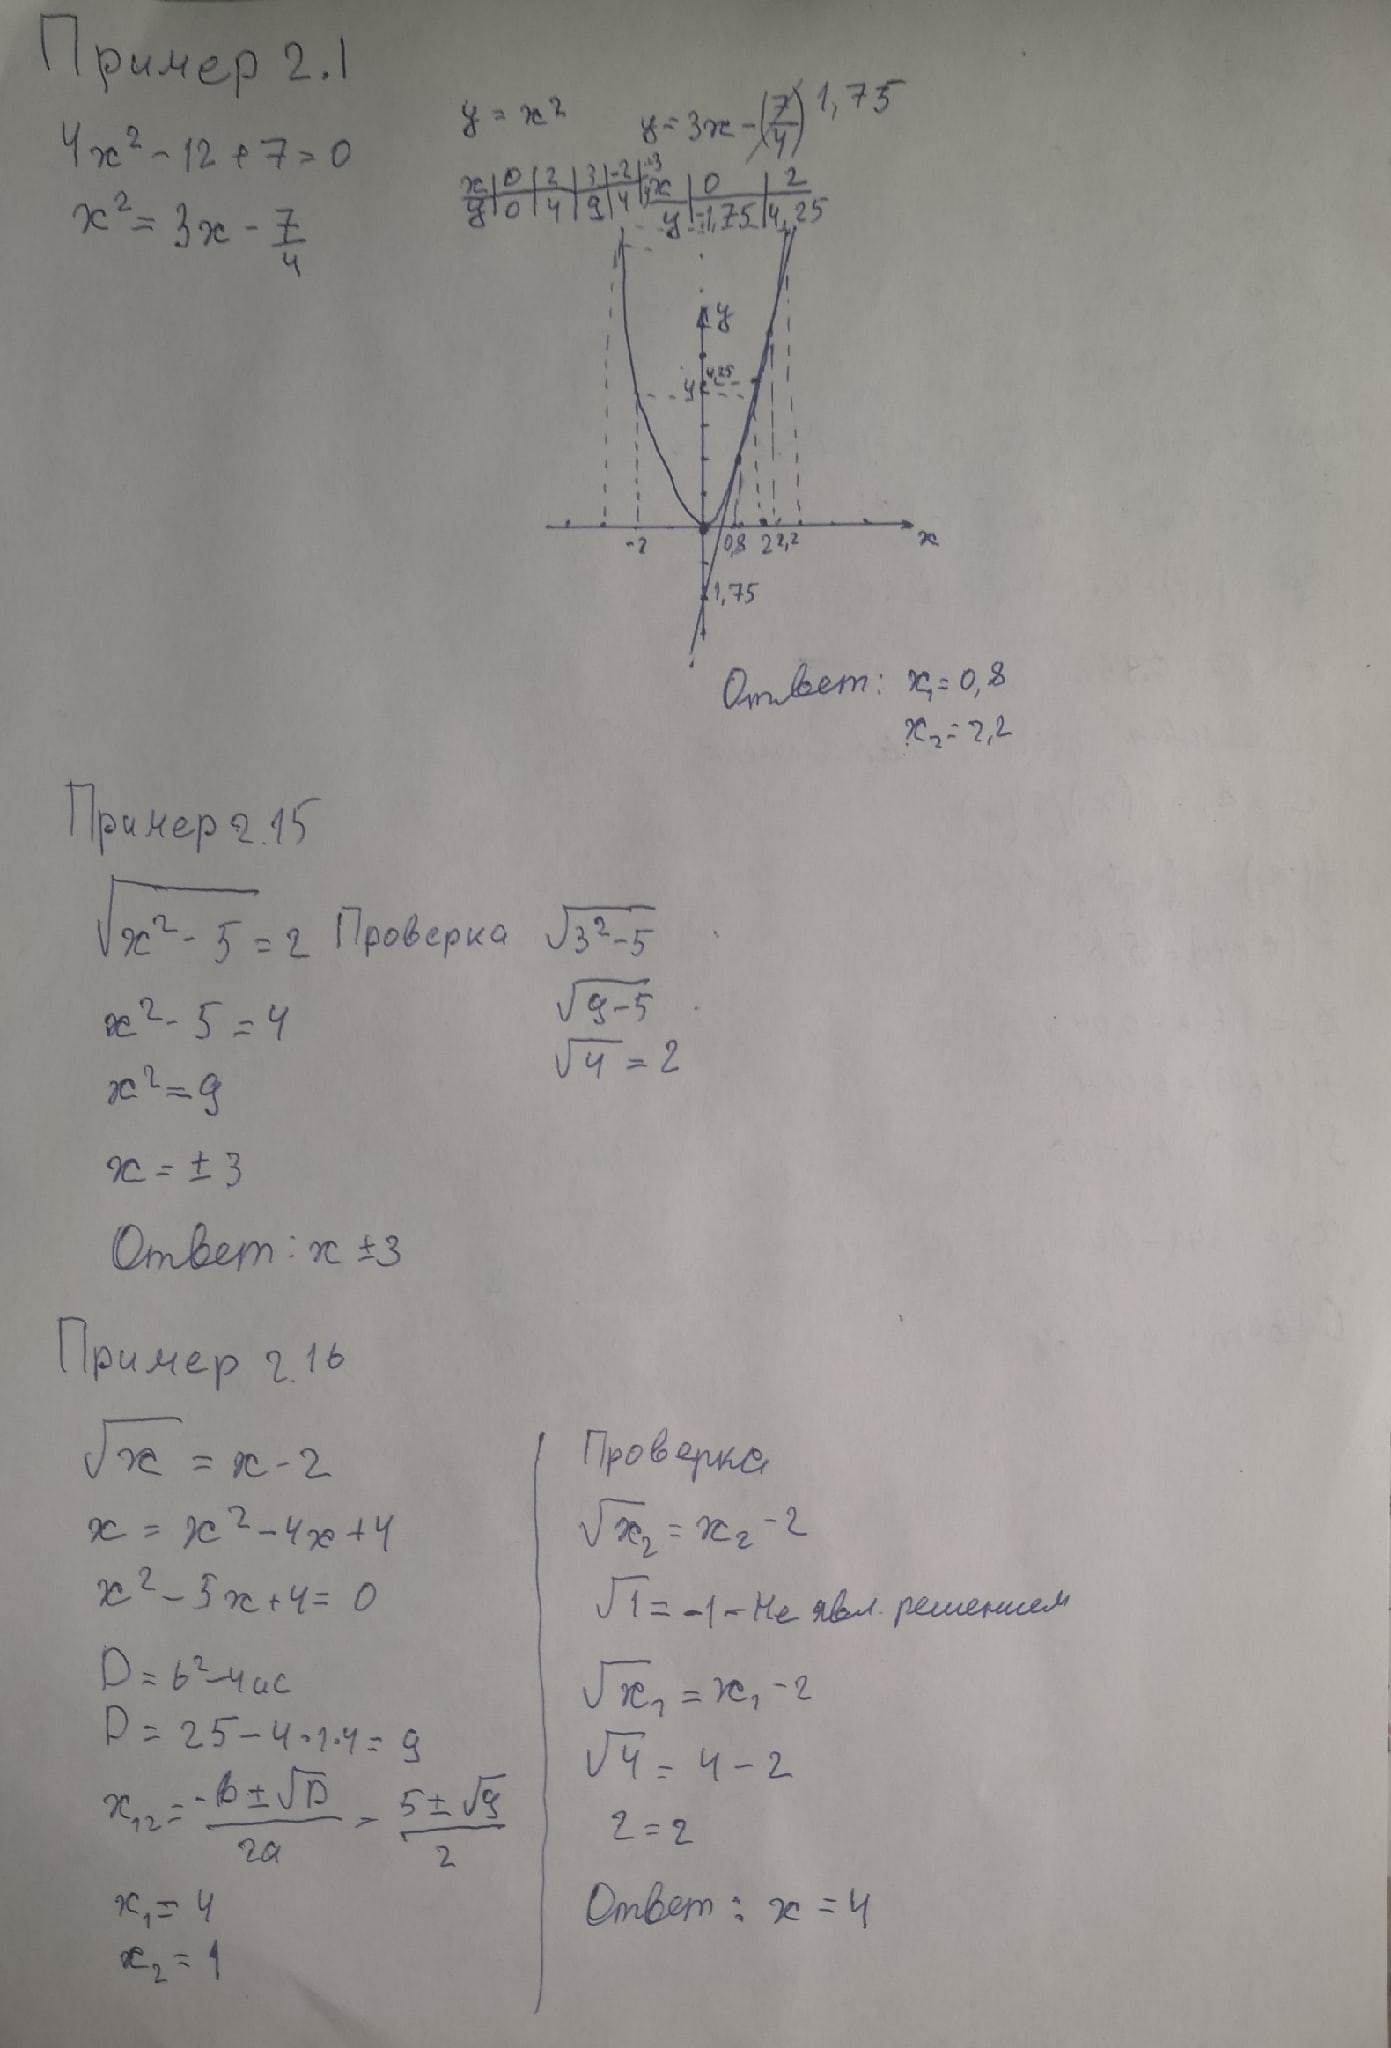 Пример 2.1
4x² - 12 + 7 = 0
x² = 3x - 7/4
y = x²
y = 3x - (7/4) 1,75
x | 0 | 2 | 3 | -2 | -3
y | 0 | 4 | 9 | 4
x | 0 | 2
y | -1,75 | 4,25
y
4,25
4
-2 0,8 2 2,2 x
1,75
Ответ: x₁ = 0,8
x₂ = 2,2
Пример 2.15
√x² - 5 = 2 Проверка √3² - 5
√9 - 5
x² - 5 = 4
√4 = 2
x² = 9
x = ± 3
Ответ: x ±3
Пример 2.16
√x = x - 2
x = x² - 4x + 4
x² - 5x + 4 = 0
D = b² - 4ac
D = 25 - 4·1·4 = 9
x₁₂ = -b ± √D / 2a = 5 ± √9 / 2
x₁ = 4
x₂ = 1
Проверка
√x₂ = x₂ - 2
√1 = -1 - Не явл. решением
√x₁ = x₁ - 2
√4 = 4 - 2
2 = 2
Ответ: x = 4